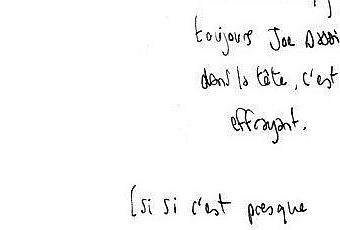 toujours Joe Dassi
dans la tête, c'est
effrayant.
(si si c'est presque